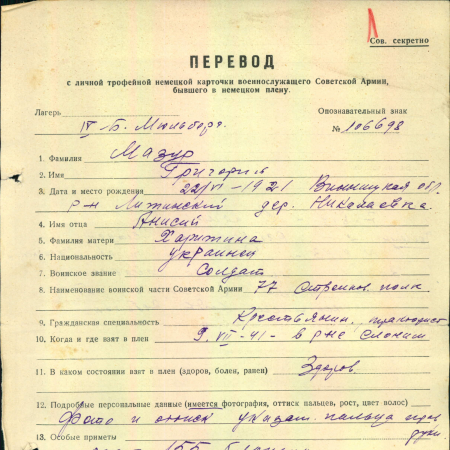 Сов. секретно
ПЕРЕВОД
с личной трофейной немецкой карточки военнослужащего Советской Армии,
бывшего в немецком плену.
Лагерь Опознавательный знак
IV-Б. Мюльберг. № 106698
1. Фамилия Мазур
2. Имя Григорий
3. Дата и место рождения 22/VI-1921 Винницкая обл.
р-н Литинский дер. Николаевка.
4. Имя отца Анисий
5. Фамилия матери
6. Национальность украинец
7. Воинское звание Солдат
8. Наименование воинской части Советской Армии 77 Стрелков. полк
9. Гражданская специальность Крестьянин,
10. Когда и где взят в плен 9.VII-41- в р-не Слоним
11. В каком состоянии взят в плен (здоров, болен, ранен) Здоров
12. Подробные персональные данные (имеется фотография, оттиск пальцев, рост, цвет волос)
Фото и оттиск указат. пальца прав
руки.
13. Особые приметы